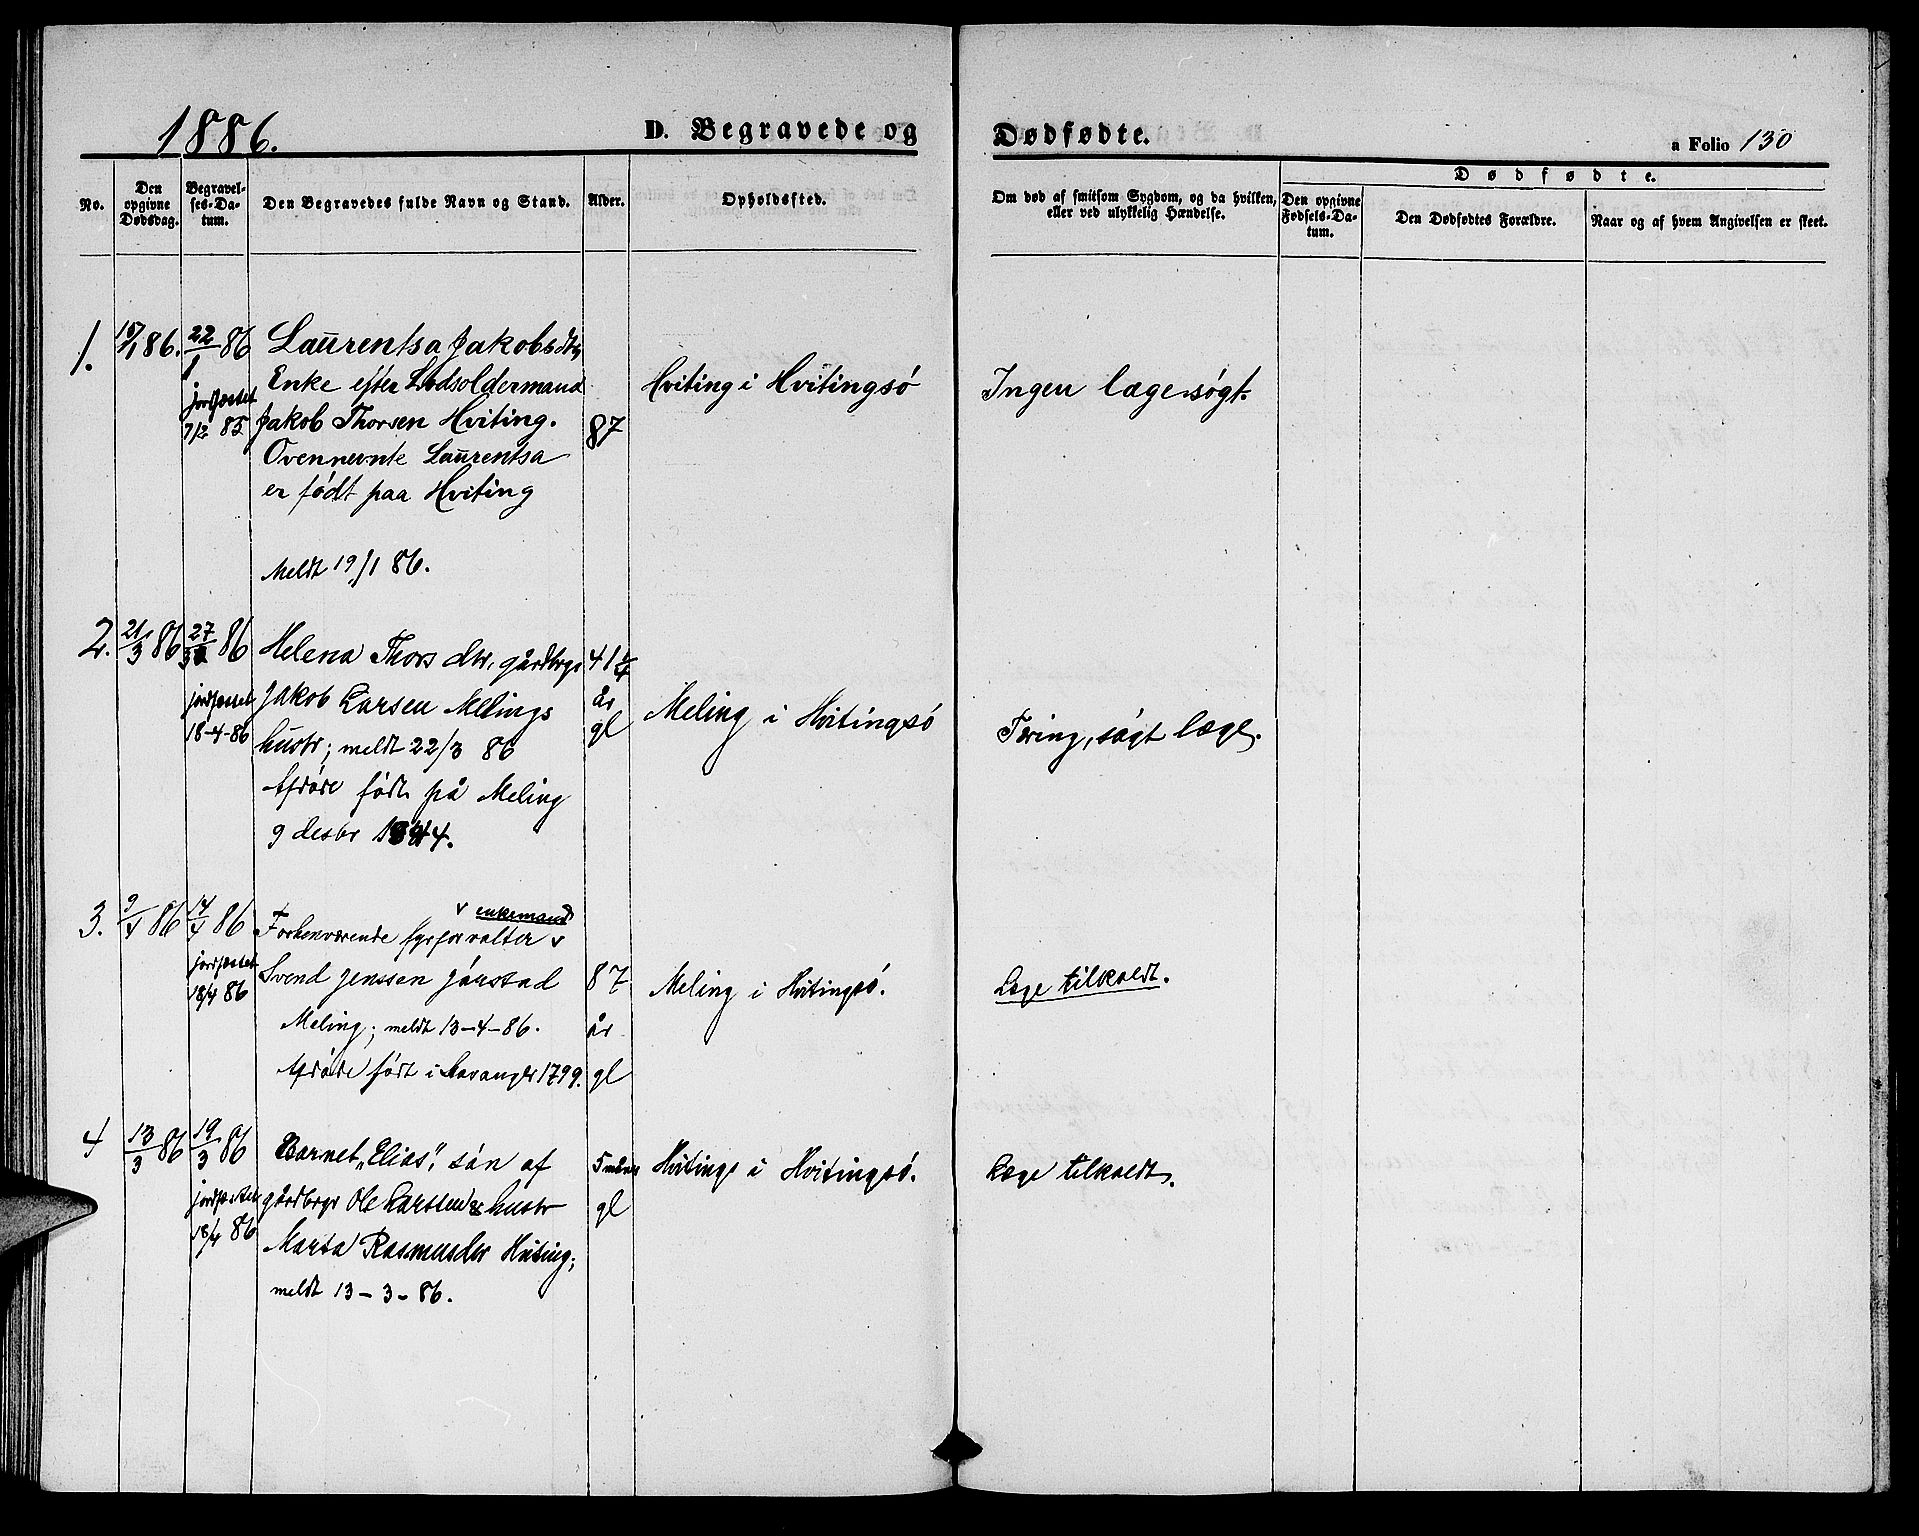 1886.
D. Begravede og Dødfødte.
a Folio 130
No.
Den opgivne Dødsdag.
Begravelses-Datum.
Den Begravedes fulde Navn og Stand.
Alder.
Opholdssted.
Om død af smitsom Sygdom, og da hvilken, eller ved ulykkelig Hændelse.
Dødfødte.
Den opgivne Fødsels-Datum.
Den Dødfødtes Forældre.
Naar og af hvem Angivelsen er skeet.
1.
15/1 86.
22/1 86
jordfæstet
7/2 85
Laurentsa Jakobsdtr,
Enke efter Lodsoldermand
Jakob Thorsen Hviting.
Ovennevnte Laurentsa
er født paa Hviting
Meldt 19/1 86.
87
Hviting i Hvitingsö
Ingen læge søgt.
2.
21/3 86
27/3 86
jordfæstet
18-4-86
Helena Thorsdtr, gårdbrgr
Jakob Larsen Melings
hustr; meldt 22/3 86
Afdöde födt på Meling
9 desbr 1844.
41 1/4
år
gl
Meling i Hvitingsö
Tæring, sögt læge.
3.
9/4 86
14/4 86
jordfæstet
18/4 86
enkemand
Forhenværende fyrforvalter
Svend Jenssen Jåsstad
Meling; meldt 13-4-86.
Afdöde födt i Stavanger 1799.
87
år
gl
Meling i Hvitingsö.
Læge tilkaldt.
4
13/3 86
19/3 86
jordfæstet
18/4 86
Barnet "Elias", sön af
gårdbrgr Ole Larsen & hustr
Marta Rasmusdtr Hviting;
meldt 13-3-86.
5 mån
gl
Hvitinge i Hvitingsö.
Læge tilkaldt.